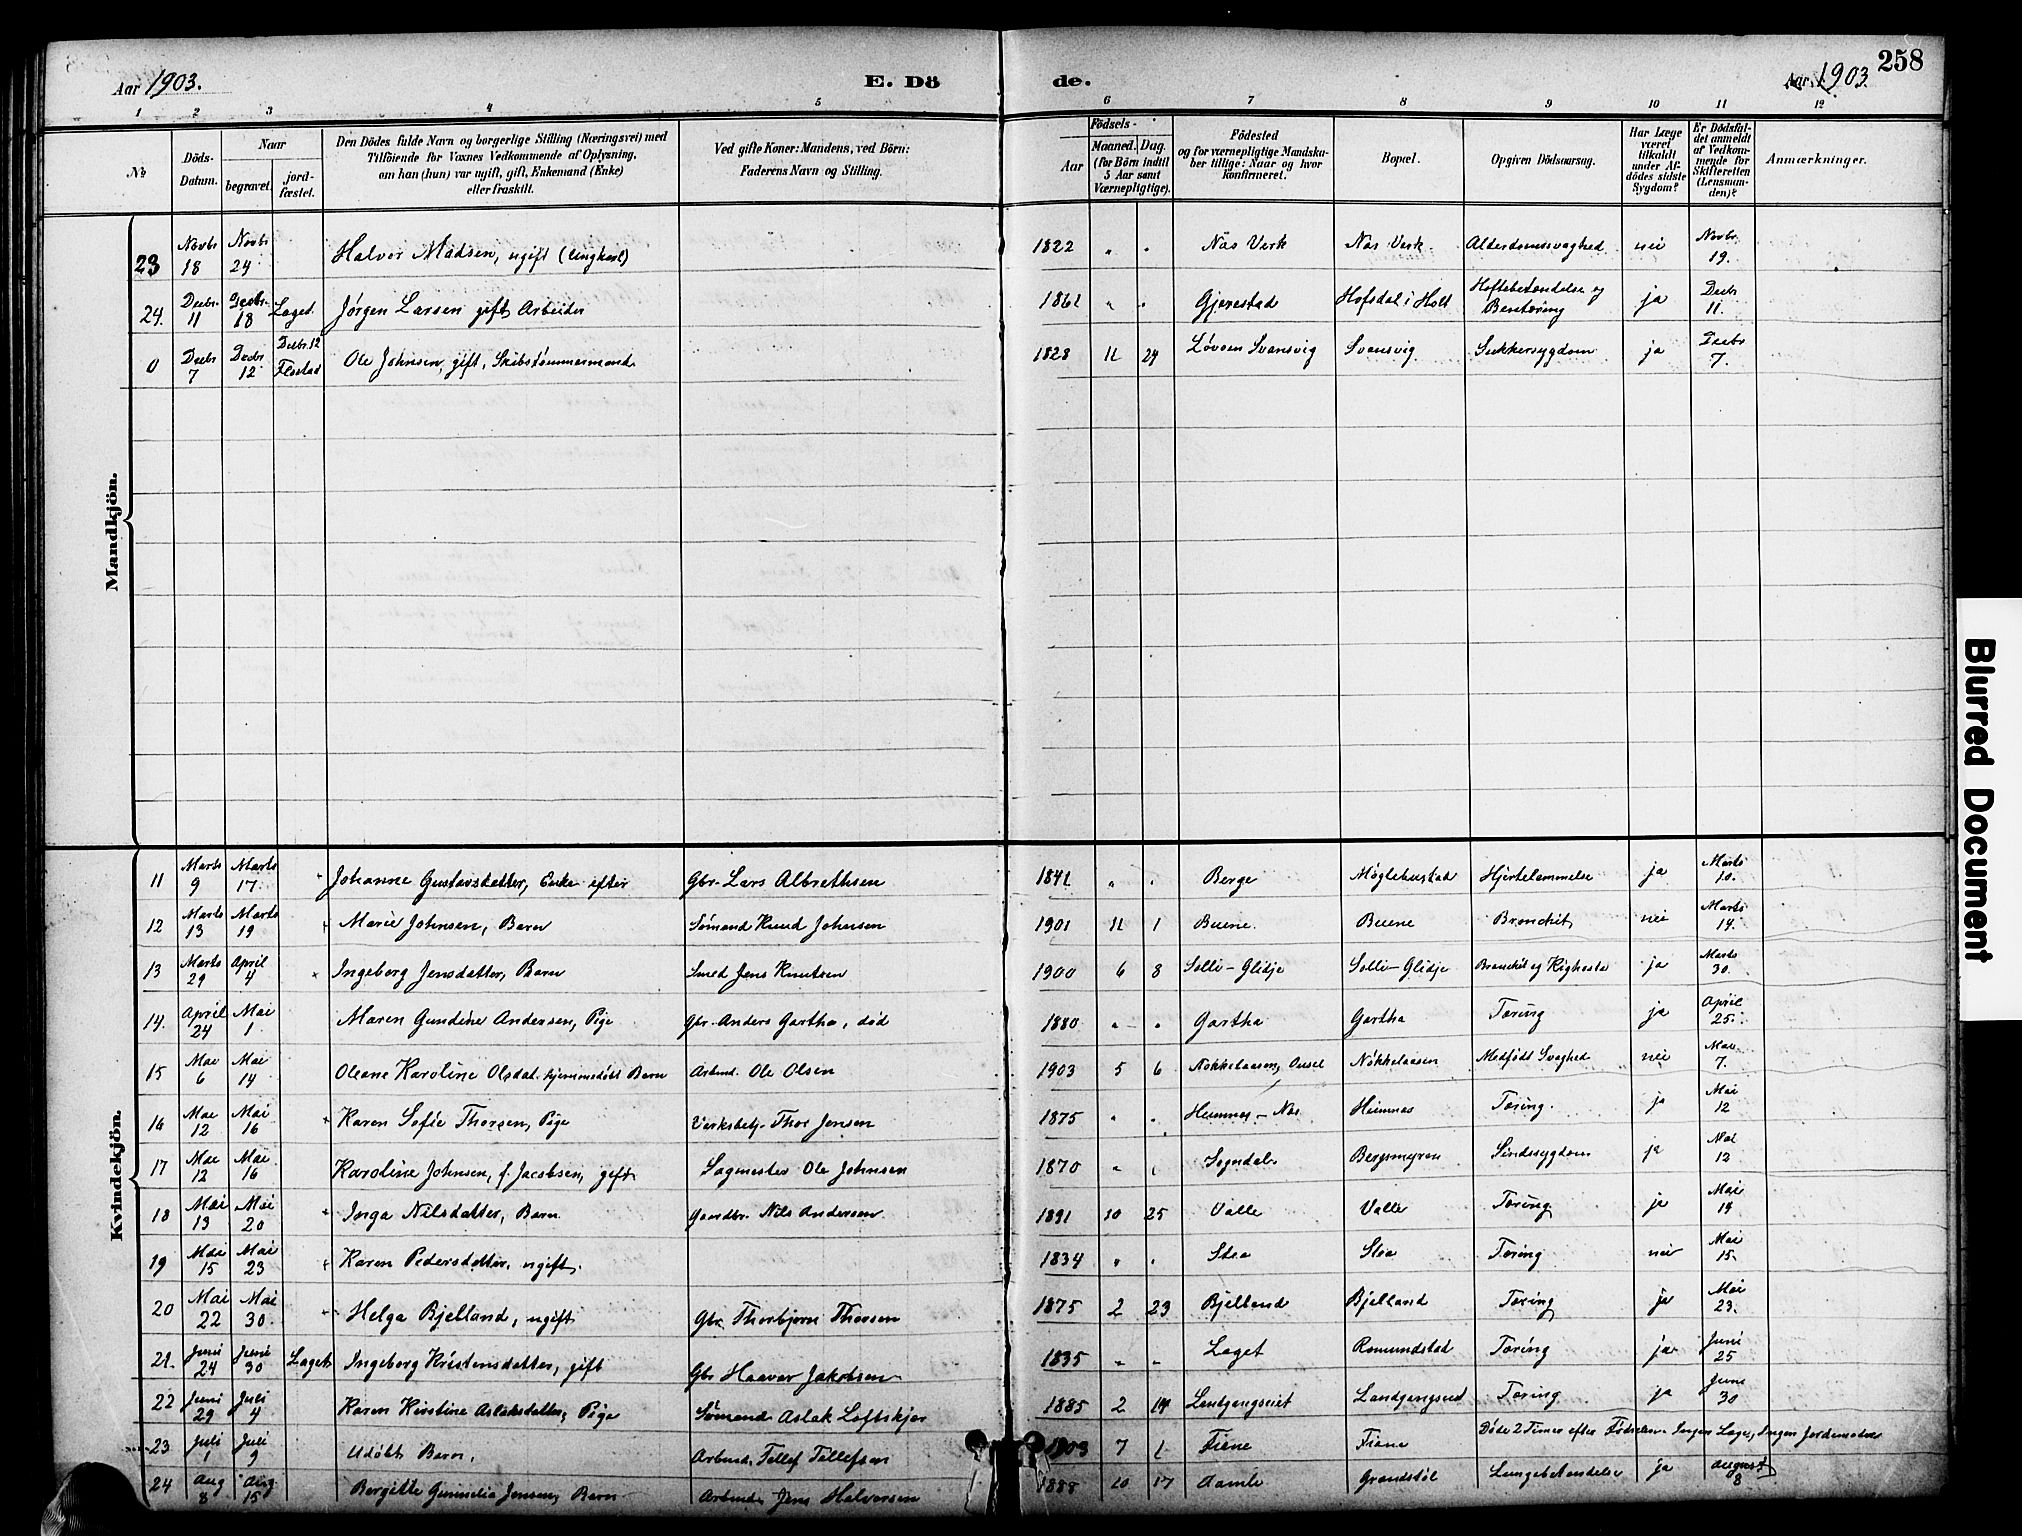 258
Aar 1903.
E. Döde.
Aar 1903.
1 2 3 4 5 6 7 8 9 10 11 12
No
Döds-Datum.
Naar
begravet.
jordfæstet.
Den Dödes fulde Navn og borgerlige Stilling (Næringsvei) med
Tilföiende for Voxnes Vedkommende af Oplysning,
om han (hun) var ugift, gift, Enkemand (Enke)
eller fraskilt.
Ved gifte Koner: Mandens, ved Börn:
Faderens Navn og Stilling.
Födsels-
Aar
Maaned. Dag.
(for Börn indtil
5 Aar samt
Værnepligtige).
Födested
og for værnepligtige Mandskaber tillige: Naar og hvor
konfirmeret.
Bopæl.
Opgiven Dödsaarsag.
Har Læge
været
tilkaldt
under Afdödes sidste
Sygdom?
Er Dödsfaldet anmeldt
af Vedkommende for
Skifteretten
(Lensmanden)?
Anmærkninger.
Mandkjön.
23 Novbr 18 Novbr 24 Halvor Madsen, ugift (Ungkarl) 1822 " " Næs Verk Næs Verk Alderdomssvaghed nei Novbr 19.
24. Decbr 11 Decbr 18 Laget. Jørgen Larsen gift Arbeider 1861 " " Gjerestad Hofsdal i Holt Hoftebetændelse og Bentæring ja Decbr 11.
0 Decbr 7 Decbr 12 Decbr. 12 Flostad Ole Johnsen, gift, Skibstømmermand 1828 11 24 Løvoen Svansvig Svansvig Sukkersygdom ja Decbr 7.
Kvindekjön.
11 Marts 9 Marts 17. Johanne Gustavsdatter, Enke efter Gbr. Lars Albrethsen 1841 " " Berge Møglebustad Hjertelammelse ja Marts 10.
12 Marts 13 Marts 19 Marie Johnsen, Barn Sømand Knud Johnsen 1901 11 1 Buene. Buene Bronchit nei Marts 14.
13 Marts 29 April 4 Ingeborg Jensdatter, Barn Smed Jens Knutsen 1900 6 8 Solli-Glidje Solli-Glidje Bronchit og Kighoste ja Marts 30.
14. April 24 Mai 1 Maren Gundine Andersen, Pige Gbr. Anders Gartha, død 1880 " " Gartha Gartha Tæring ja April 25.
15 Mai 6 Mai 14 Oleane Karoline Olsdat. hjemmedøbt Barn Arbeid. Ole Olsen 1903 5 6 Nøkkelaasen, Nøkkelaasen Medfødt Svaghed nei Mai 7.
16 Mai 12 Mai 16 Karen Sofie Thorsen, Pige Verksbetj. Thor Jensen 1875 " " Heimnes - Næs Heimnes Tæring. ja Mai 12
17 Mai 12 Mai 16 Karoline Johnsen, f. Jacobsen, gift Sagmester Ole Johnsen 1870 " " Sogndal Bergsmyren Sindssygdom ja Mai 12
18 Mai 13 Mai 20 Inga Nilsdatter, Barn Gaardbr. Nils Andersen 1891 10 25 Valle Valle Tæring ja Mai 14
19 Mai 15 Mai 23 Karen Pedersdatter, ugift. 1834 " " Stea Stea Tæring nei Mai 15.
20 Mai 22 Mai 30. Helga Bjelland, ugift Gbr. Thorbjørn Thorsen 1875 2 23 Bjelland Bjelland Tæring ja Mai 23.
21. Juni 24 Juni 30 Laget Ingeborg Kristensdatter, gift Gbr Haavor Jakobsen 1835 " " Laget Romundstad Tæring ja Juni 25
22 Juni 29 Juli 4 Karen Kirstine Aslaksdatter, Pige Sømand Aslak Loftskjær 1885 2 14 Landgangseiet Landgangseid Tæring ja Juni 30
23 Juli 1 Juli 9 Udøbt Barn, Arbeid. Tellef Tellefsen 1903 7 1 Fiane Fiane Døde 2 Timer efter Fødselen. Ingen Læge, Ingen Jordemoder
24 Aug 8 Aug 15 Bergitte Gunnelia Jensen, Barn Arbeider Jens Halvorsen 1888 10 17 Aamli Grandstøl Lungebetændelse ja August 8
Blurred Document